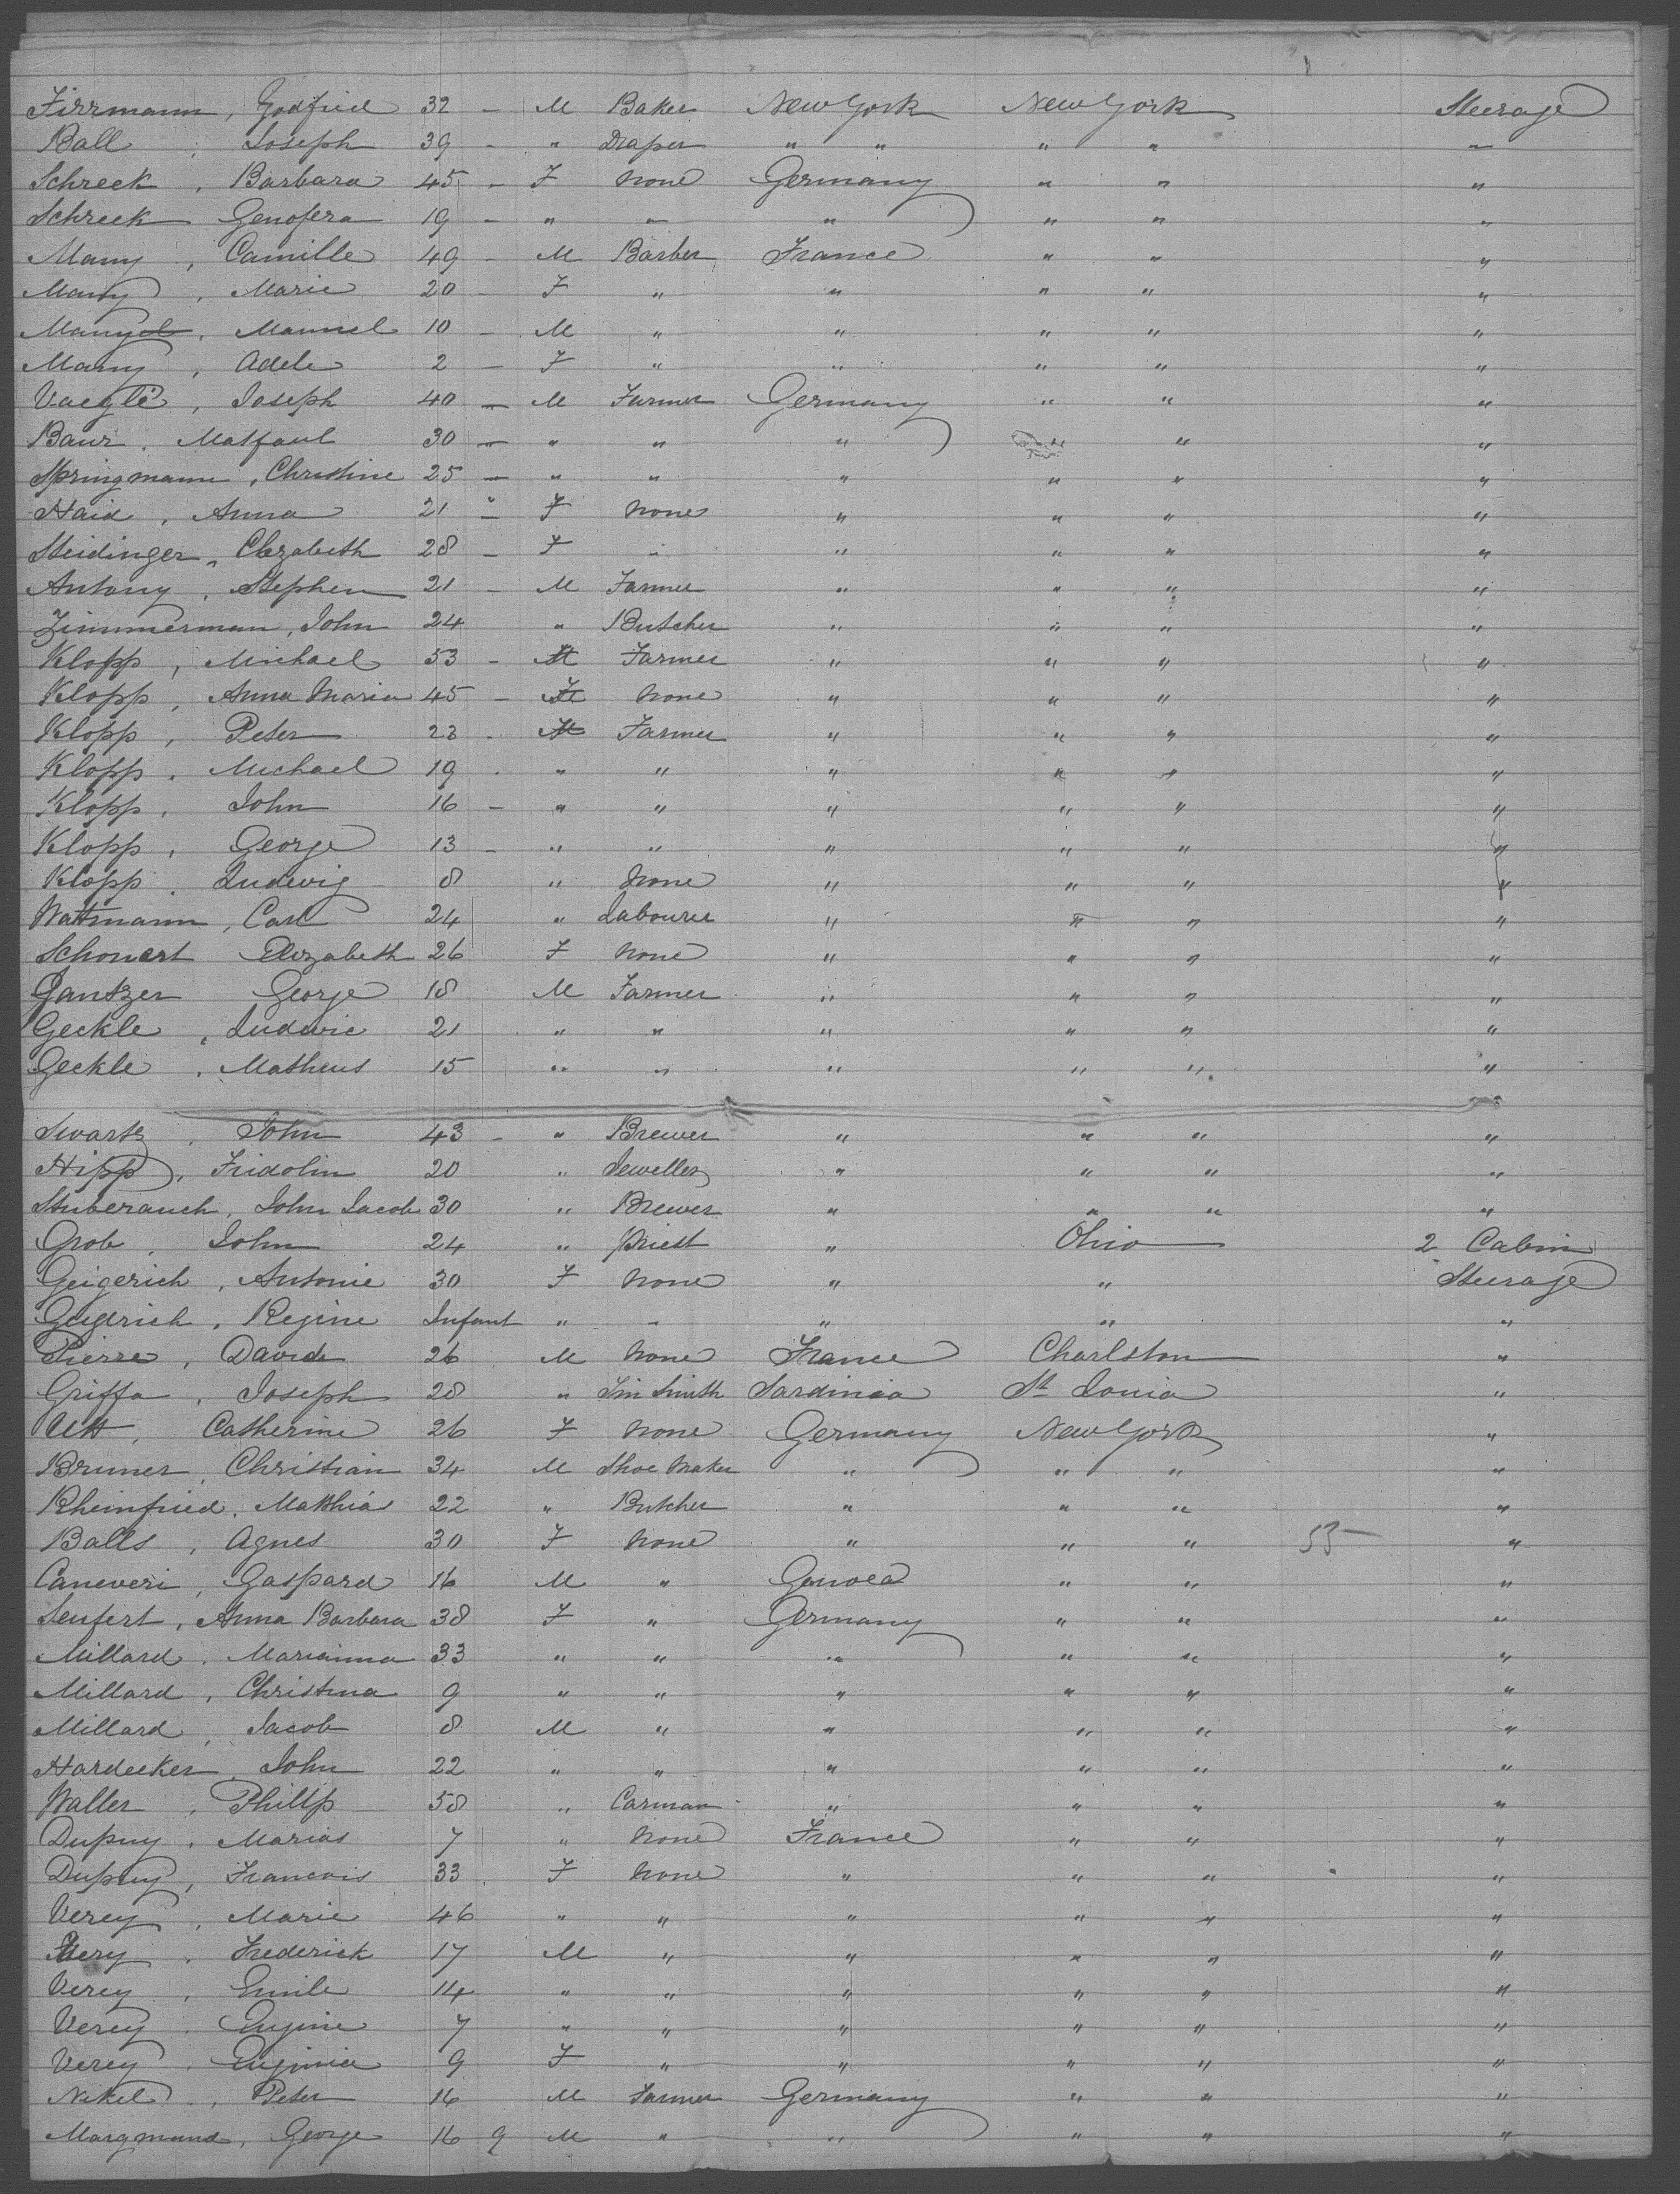 Firrmann, Godfried 32 - M Baker New York New York Steerage
Ball, Joseph 39 - " Draper " " " " "
Schreck, Barbara 45 - F None Germany " " "
Schreck Genofera 19 - " " " " " "
Many, Camille 49 - M Barber France " " "
Many, Marie 20 - F " " " " "
Many, Manuel 10 - M " " " " "
Many, Adele 2 - F " " " " "
Vaegle, Joseph 40 - M Farmer Germany " " "
Baur, Matfaul 30 - " " " " " "
Springmann, Christine 25 - " " " " " "
Haid, Anna 21 " - F None " " " "
Steidinger, Elizabeth 28 - F " " " " "
Antony, Stephen 21 - M Farmer " " " "
Zimmerman, John 24 " Butcher " " " "
Klopp, Michael 53 - M Farmer " " " "
Klopp, Anna Maria 45 - F None " " " "
Klopp, Peter 23 - M Farmer " " " "
Klopp, Michael 19 - " " " " " "
Klopp, John 16 - " " " " " "
Klopp, George 13 - " " " " " "
Klopp, Ludewig 8 " None " " " "
Wattmann, Carl 24 " Labourer " " " "
Schonert Elizabeth 26 F None " " " "
Gantzer George 18 M Farmer " " " "
Geckle, Ludwic 21 " " " " " "
Geckle, Matheus 15 " " " " " "
Swartz, John 43 - " Brewer " " " "
Hipp, Fridolin 20 " Jeweller " " " "
Stuberauch, John Jacob 30 " Brewer " " " "
Grob, John 24 " Priest " Ohio 2 Cabin
Geigerich, Antonie 30 F None " " Steerage
Geigerich, Regine Infant " " " " "
Pierre, David 26 M None France Charlston "
Griffa, Joseph 28 " Tin Smith Sardinia St Louis "
Utt, Catherine 26 F None Germany New York "
Bruner, Christian 34 M Shoe Maker " " " "
Rheinfried, Matthias 22 " Butcher " " " "
Balls, Agnes 30 F None " " " 55 "
Caneveri, Gaspard 16 M " Genoea " " "
Senfert, Anna Barbara 38 F " Germany " " "
Millard, Marianna 33 " " " " " "
Millard, Christina 9 " " " " " "
Millard, Jacob 8 M " " " " "
Hardecker, John 22 " " " " " "
Waller, Phillp 58 " Carman " " " "
Dupuy, Marias 7 " None France " " "
Dupuy, Francois 33 F None " " " "
Verey, Marie 46 " " " " " "
Very, Frederick 17 M " " " " "
Verey, Emile 14 " " " " " "
Verey, Eugine 7 " " " " " "
Verey, Euginia 9 F " " " " "
Nikel, Peter 16 M Farmer Germany " " "
Margmund, George 16 9 M " " " " "